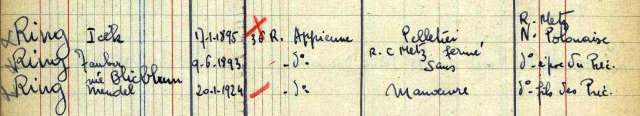 R. Metz
Ring Icek 17-1-1895 36 R. Appienne Pelletier Nè Polonaise
R. C Metz fermé
Ring Tauba 9-6-1893 - d° Sans d° épse du Préc.
née Blicblum
Ring Mendel 20-1-1924 - d° Manœuvre d° fils des Préc.